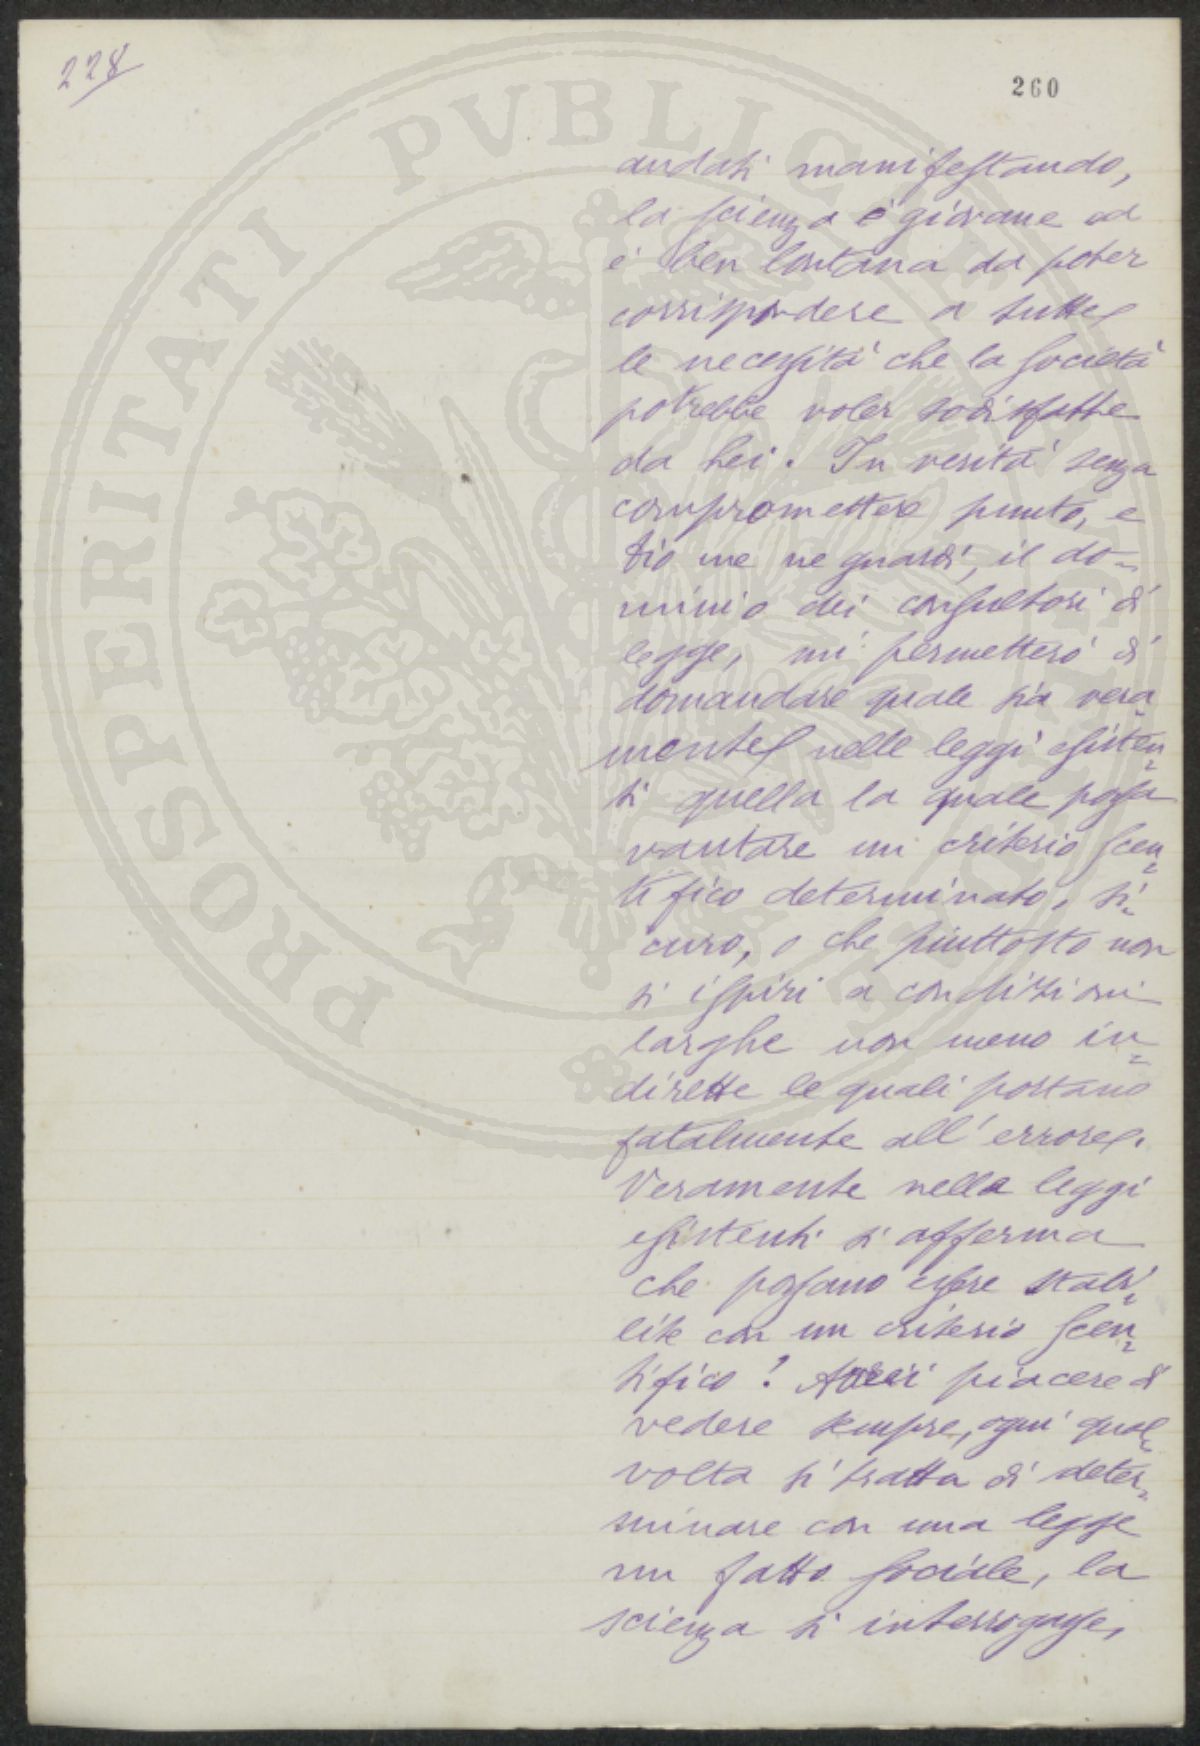 228
260
andati manifestando,
la scienza è giovane ed
è ben lontana da poter
corrispondere a tutte
le necessità che la società
potrebbe voler sodisfatte
da lei. In verità senza
compromettere punto, e
Dio me ne guardi, il do-
minio dei consultori di
legge, mi permetterò di
domandare quale sia vera
mente nelle leggi esisten
ti quella la quale possa
vantare un criterio scen
tifico determinato, si
curo, o che piuttosto non
si ispiri a condizioni
larghe non meno in
dirette le quali portano
fatalmente all'errore.
Veramente nelle leggi
esistenti si afferma
che possano essere stabi
lite con un criterio scen
tifico! Avrei piacere di
vedere sempre, ogni qual
volta si tratta di deter
minare con una legge
un fatto sociale, la
scienza si interrogasse,
PROSPERITATI PVBLICAE